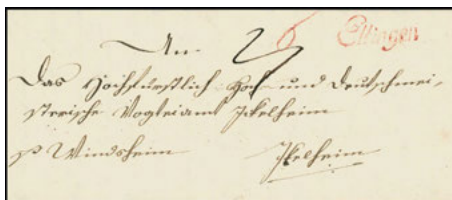 An 6 Ellingen
Das Hochfürstlich Hoch und Deutschmei-
sterische Vogteiamt Ickelheim
p Windsheim Ickelheim